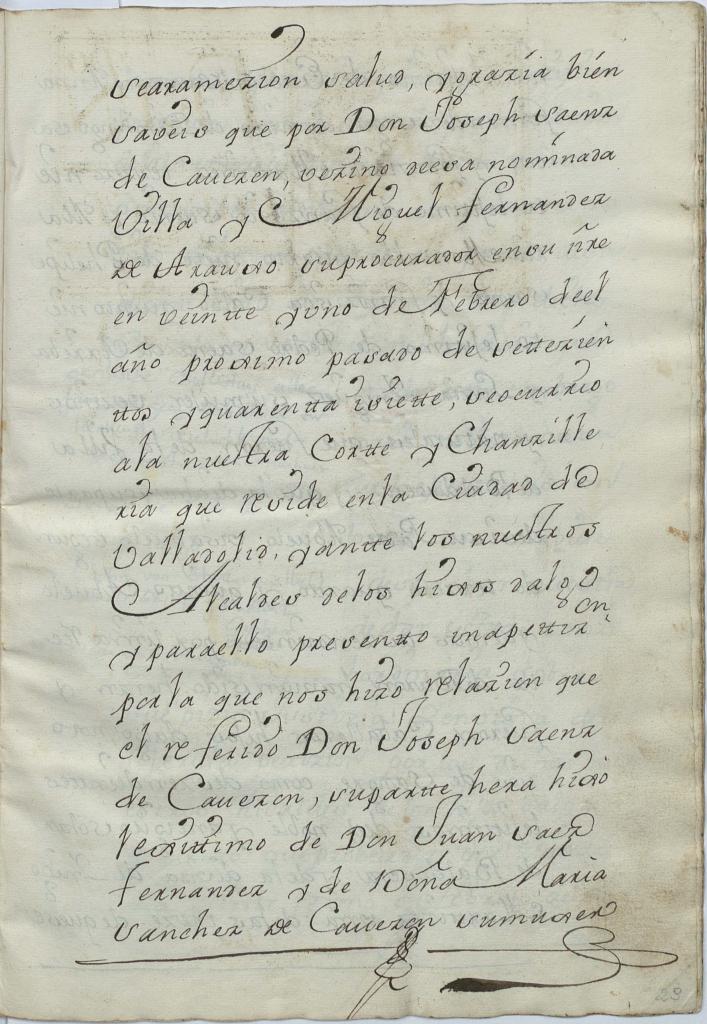 searamezion salud, ygrazia bien
saveis que por Don Joseph saenz
de Cavezon, vezino deesa nominada
Villa y Miguel fernandez
de Arauxo suprocurador ensu ñre
en veintte yuno de Febrero deel
año proximo pasado de settezien
ttos yquarentta isiette, seocurrio
ala nuestra Cortte y Chanzille
ria que reside enla Ciudad de
Valladolid, yantte los nuestros
Alcaldes delos hixos dalgo
y paraello presentto unapettizon
porla que nos hizo relazion que
el referido Don Joseph saenz
de Cavezon, supartte hera hixo
lexittimo de Don Juan saez
fernandez y de Doña Maria
sanchez de Cavezon sumuxer
23